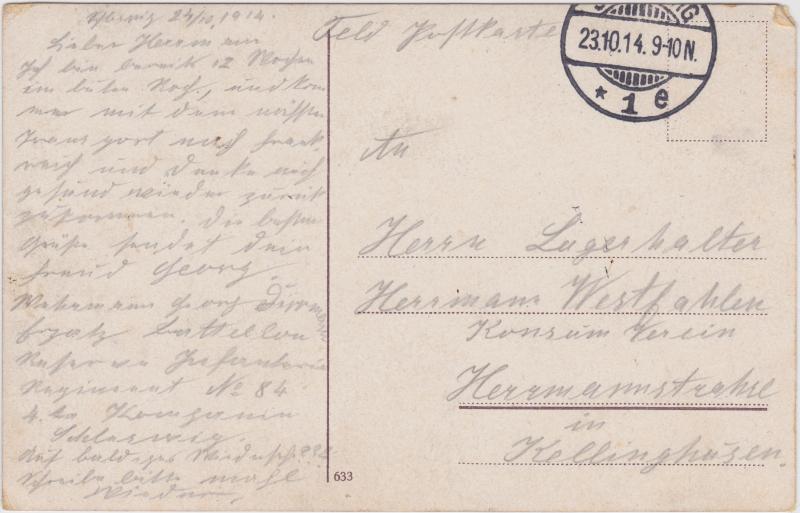 Schleswig 24/10. 1914.
Lieber Herrmann
Ich bin bereits 12 Wochen
im bunten Rock, und kom
me mit dem nächsten
Transport nach Frank
reich und denke auch
gesund wieder zurück
zukommen. Die besten
Grüße sendet dein
Freund Georg.
Wehrmann Georg
Ersatz Battellon
Reserve Infanterie
Regiment No 84
4. te Kompanie
Schleswig.
Auf baldiges Wiedersehn
Schreibe bitte mahl
wieder
Feld Postkarte
23.10.14. 9-10N.
* 1 e
An
Herrn Lagerhalter
Herrmann Westfahlen
Konsum Verein
Herrmannstrahse
in
Kellinghusen.
633